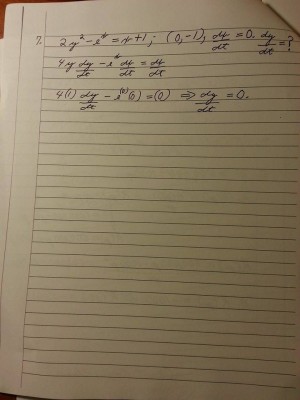 7. 2y² - eˣ = x + 1; (0, -1); dx/dt = 0. dy/dt = ?!
4y dy/dt - eˣ dx/dt = dx/dt
4(1) dy/dt - e⁽⁰⁾(0) = (0) ⇒ dy/dt = 0.